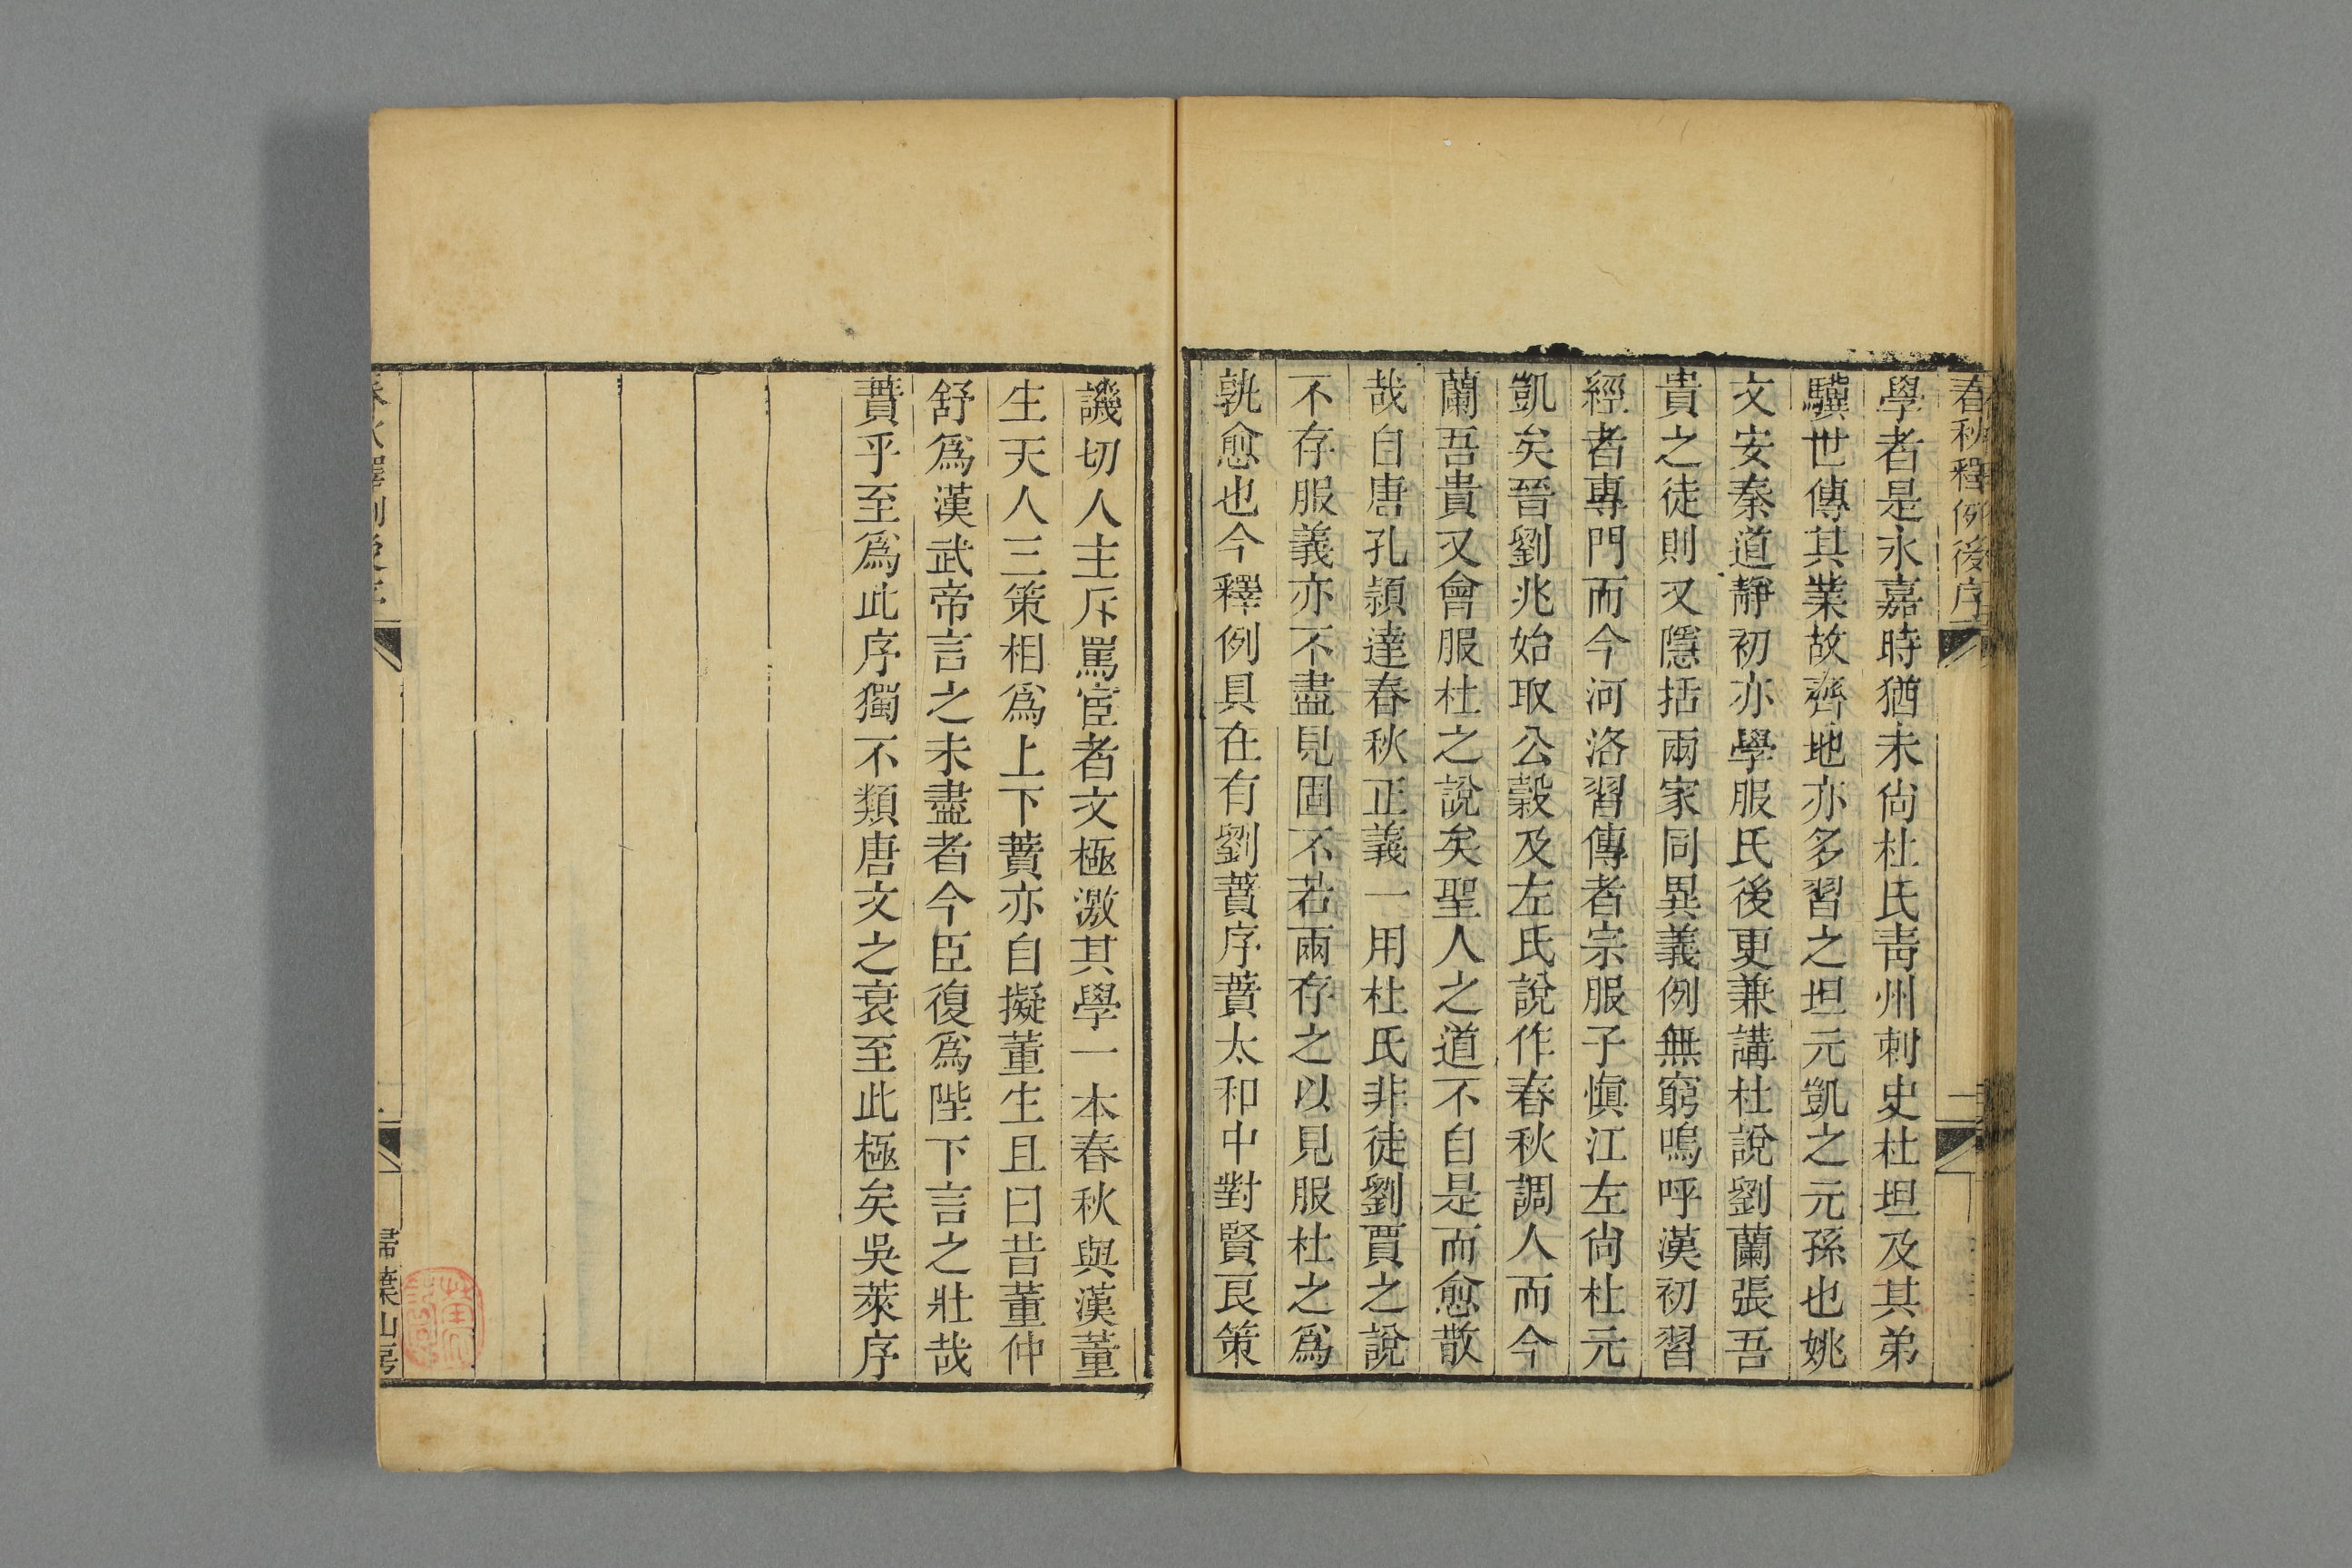 春秋釋例後序
二
學者是永嘉時猶未尙杜氏靑州刺史杜坦及其弟
驥世傳其業故齊地亦多習之坦元凱之元孫也姚
文安秦道靜初亦學服氏後更兼講杜說劉蘭張吾
貴之徒則又隱括兩家同異義例無窮嗚呼漢初習
經者專門而今河洛習傳者宗服子愼江左尙杜元
凱矣晉劉兆始取公穀及左氏說作春秋調人而今
蘭吾貴又會服杜之說矣聖人之道不自是而愈散
哉自唐孔頴達春秋正義一用杜氏非徒劉賈之說
不存服義亦不盡見固不若兩存之以見服杜之爲
孰愈也今釋例具在有劉蕡序蕡太和中對賢良策
譏切人主斥罵宦者文極激其學一本春秋與漢董
生天人三策相爲上下蕡亦自擬董生且曰昔董仲
舒爲漢武帝言之未盡者今臣復爲陛下言之壯哉
蕡乎至爲此序獨不類唐文之衰至此極矣吳萊序
春秋釋例後序
掃葉山房